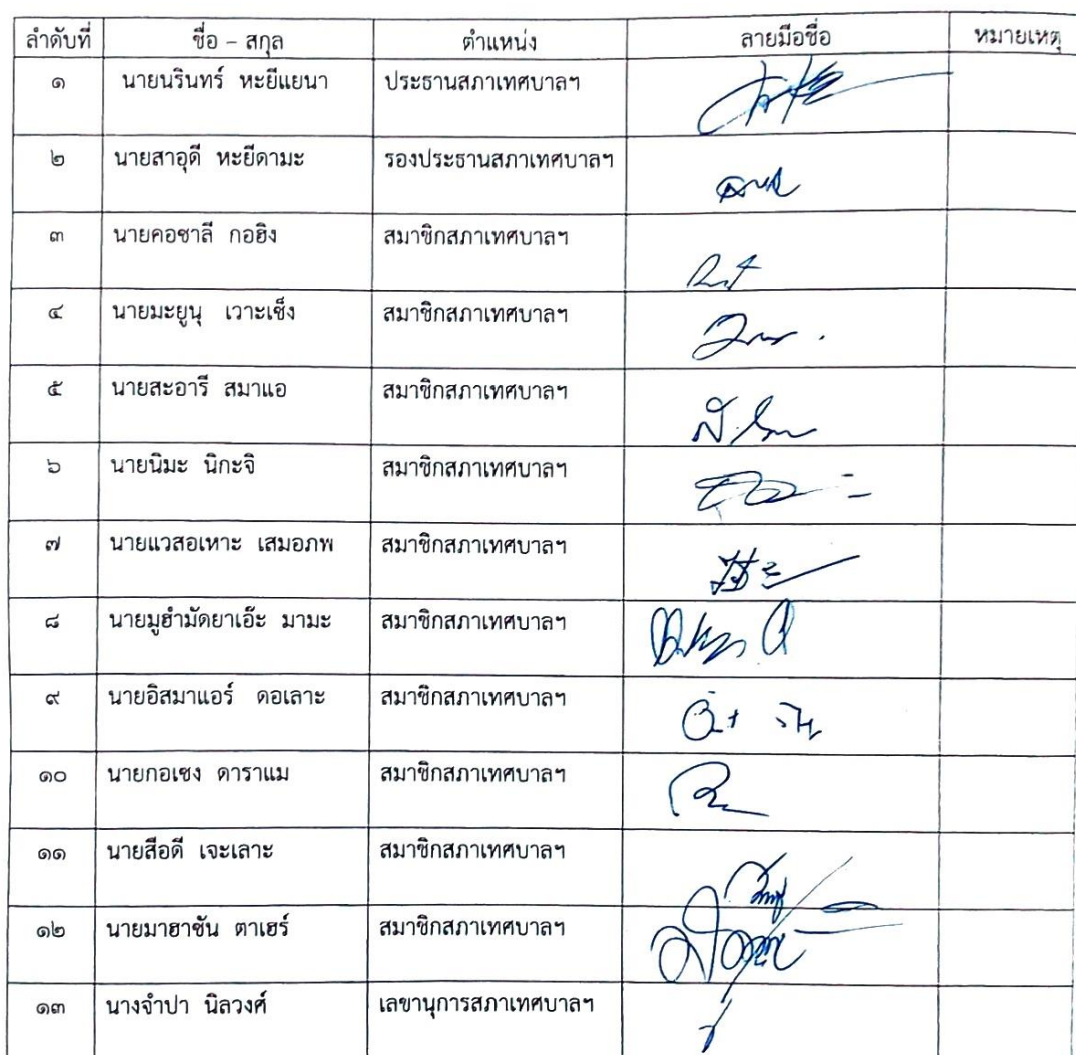 ลำดับที่ ชื่อ – สกุล ตำแหน่ง ลายมือชื่อ หมายเหตุ
๑ นายนรินทร์ หะยีแยนา ประธานสภาเทศบาลฯ
๒ นายสาอุดี หะยีดามะ รองประธานสภาเทศบาลฯ
๓ นายคอซาลี กอฮิง สมาชิกสภาเทศบาลฯ
๔ นายมะยูนุ เวาะเซ็ง สมาชิกสภาเทศบาลฯ
๕ นายสะอารี สมาแอ สมาชิกสภาเทศบาลฯ
๖ นายนิมะ นิกะจิ สมาชิกสภาเทศบาลฯ
๗ นายแวสอเหาะ เสมอภพ สมาชิกสภาเทศบาลฯ
๘ นายมูฮำมัดยาเอ๊ะ มามะ สมาชิกสภาเทศบาลฯ
๙ นายอิสมาแอร์ ดอเลาะ สมาชิกสภาเทศบาลฯ
๑๐ นายกอเซง ดาราแม สมาชิกสภาเทศบาลฯ
๑๑ นายสือดี เจะเลาะ สมาชิกสภาเทศบาลฯ
๑๒ นายมาฮาซัน ตาเฮร์ สมาชิกสภาเทศบาลฯ
๑๓ นางจำปา นิลวงศ์ เลขานุการสภาเทศบาลฯ